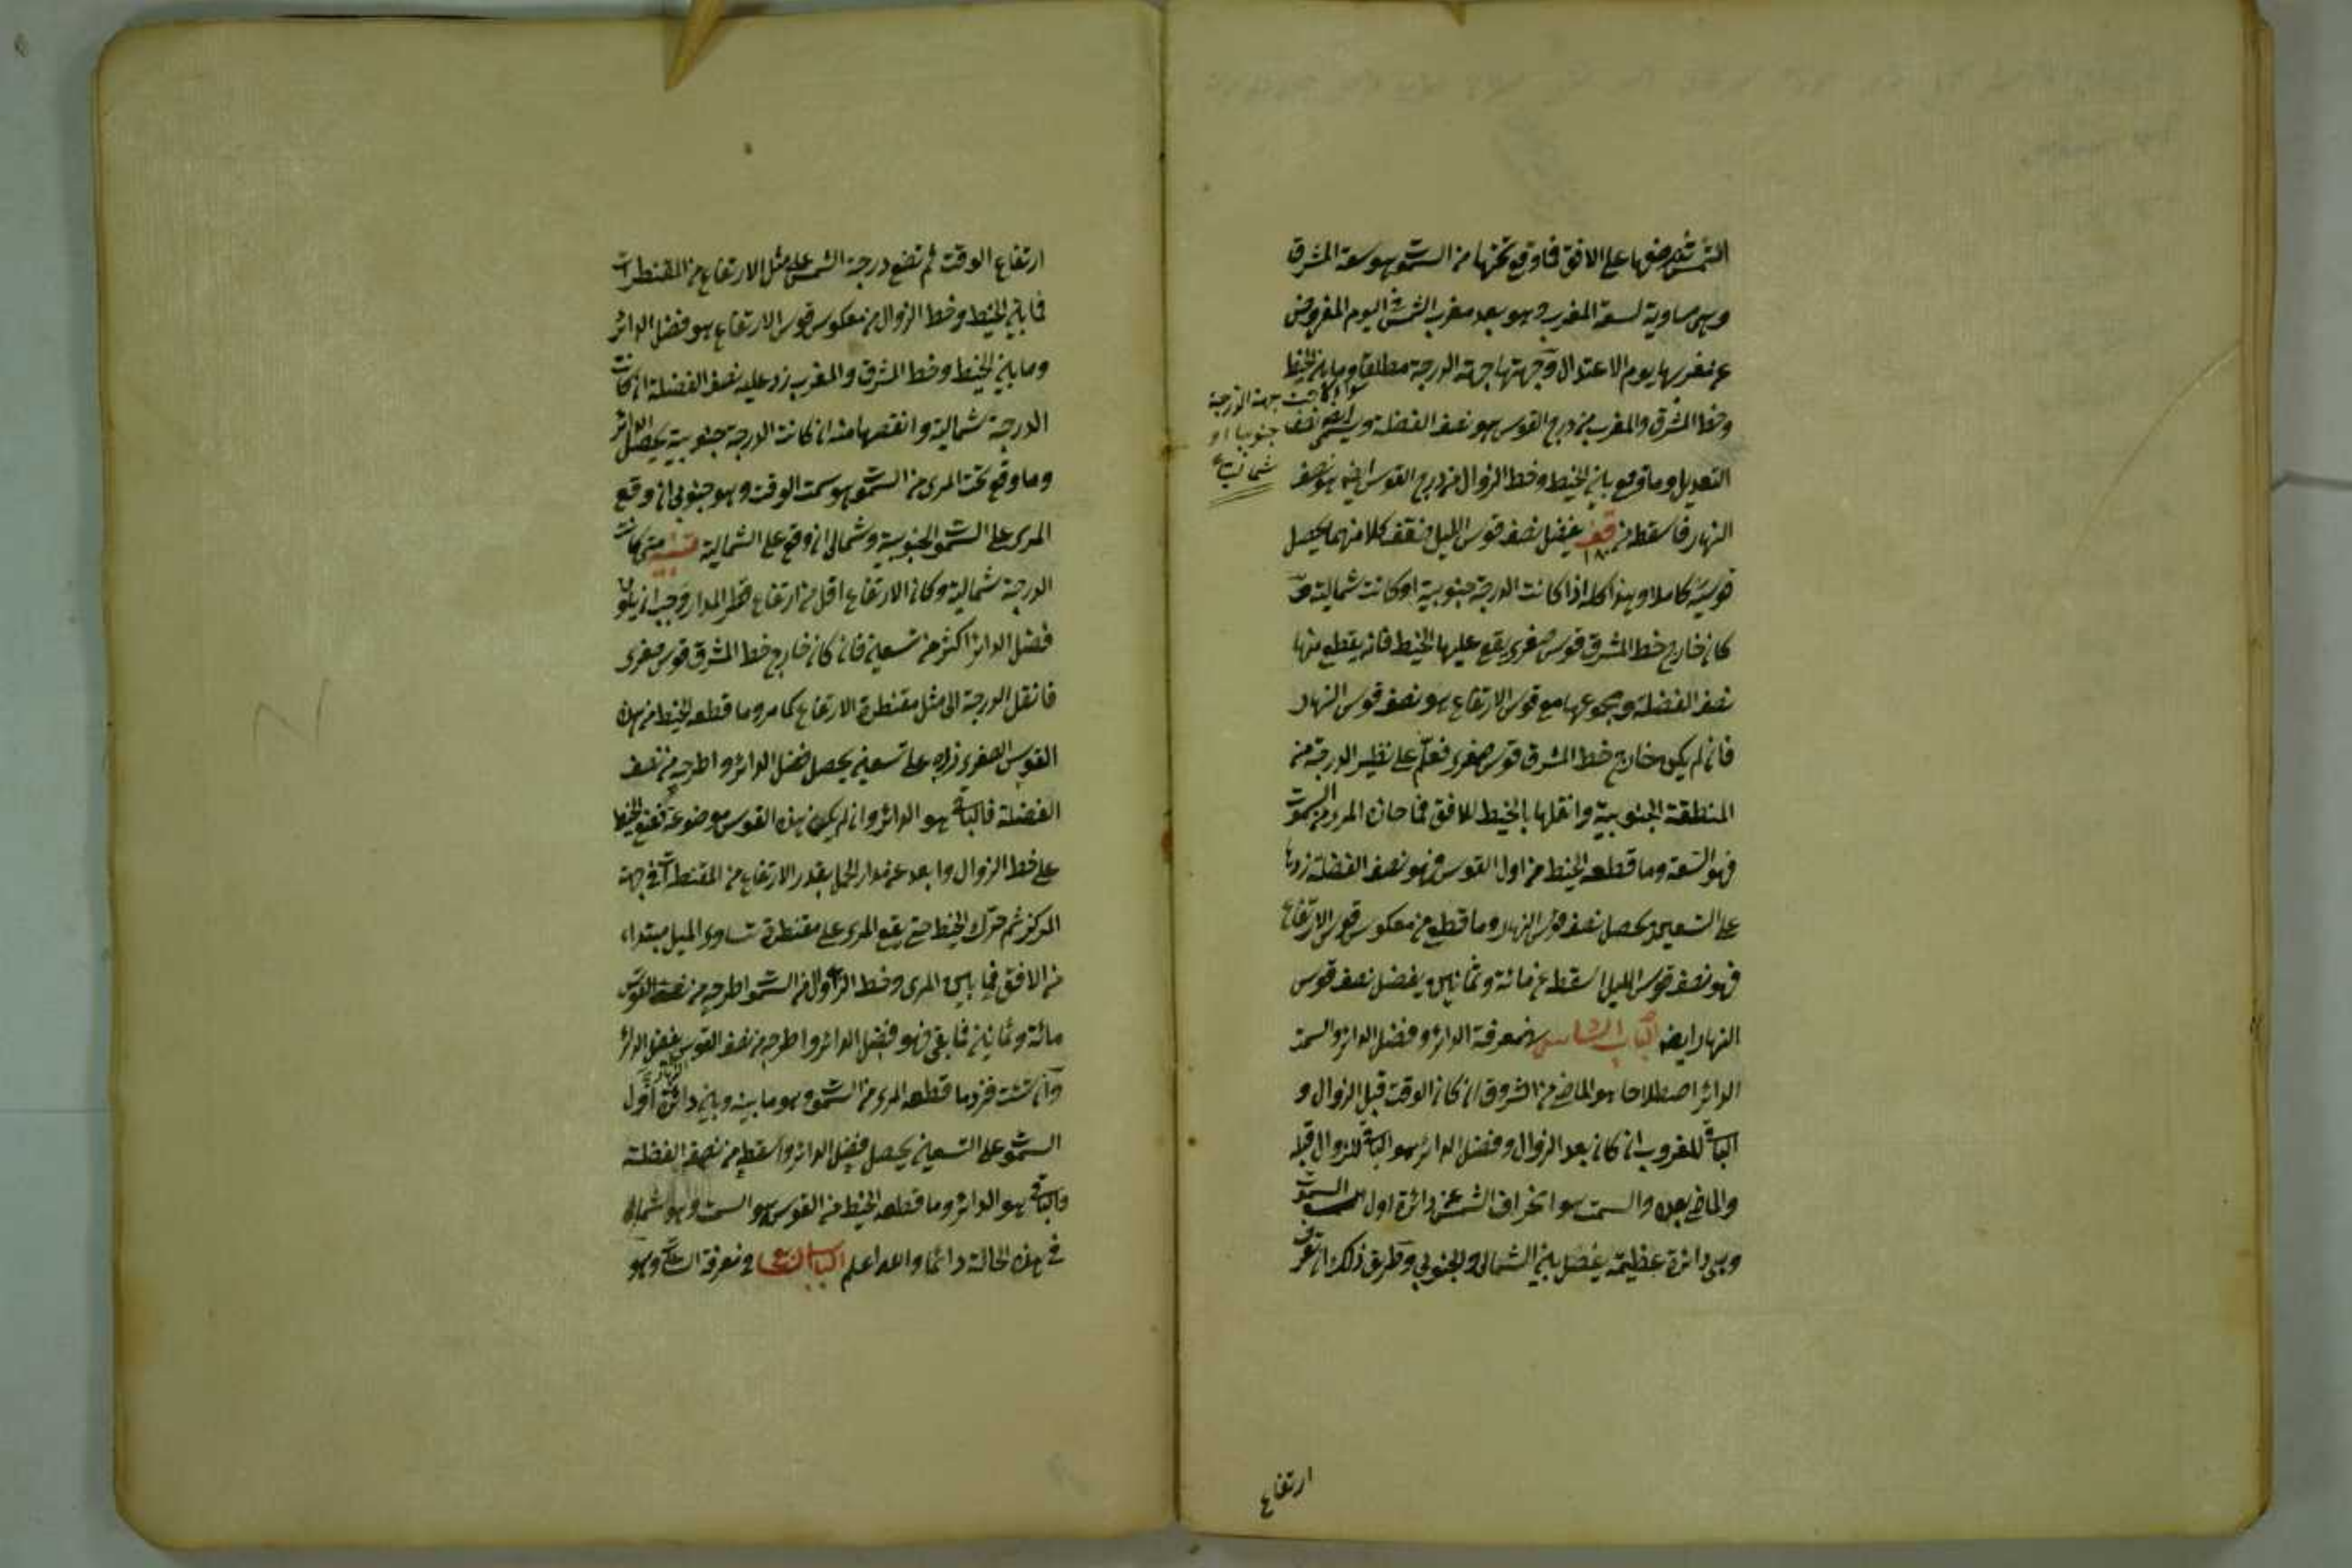 الشمس ثم ضعها على الافق فما وقع تحتها من السموت هو سعة المشرق
وهي مساوية لسعة المغرب وهو بعد مغرب الشمس في اليوم المفروض
عن مغربها يوم الاعتدال وجهتها جهة الدرجة مطلقا وما بين الخيط
سواء كانت جهة الدرجة جنوبيا او شماليا
وخط المشرق والمغرب من درج القوس هو نصف الفضلة ويسمى ايضا نصف
التعديل وما وقع بين الخيط وخط الزوال من درج القوس ايضا هو نصف
النهار فاسقطه من قف ١٨٠ يفضل نصف قوس الليل ضعف كلا منهما يحصل
قوسيه كاملا وهذا كله اذا كانت الدرجة جنوبية او كانت شمالية و
كان خارج خط المشرق قوس صغرى يقع عليها الخيط فانه يقطع منها
نصف الفضلة ومجموعها مع قوس الارتفاع هو نصف قوس النهار
فان لم يكن خارج خط المشرق قوس صغرى فعلّم على نظير الدرجة من
المنطقة الجنوبية وانقلها بالخيط للافق فما حاذه المرى من السموت
فهو السعة وما قطعه الخيط من اول القوس فهو نصف الفضلة زدها
على التسعين يحصل نصف قوس النهار وما قطع من معكوس قوس الارتفاع
فهو نصف قوس الليل اسقطه من مائة وثمانين يفضل نصف قوس
النهار ايضا الباب السادس في معرفة الدائر وفضل الدائر والسمت
الدائر اصطلاحا هو الماضي من الشروق ان كان الوقت قبل الزوال و
الباقي للغروب ان كان بعد الزوال وفضل الدائر هو الباقي للزوال قبله
والماضي بعده والسمت هو انحراف الشمس عن دائرة اول السموت
وهي دائرة عظيمة يفصل بين الشمالي والجنوبي وطريق ذلك ان تعرف
ارتفاع
ارتفاع الوقت ثم تضع درجة الشمس على مثل الارتفاع من المقنطرات
فما بين الخيط وخط الزوال من معكوس قوس الارتفاع هو فضل الدائر
وما بين الخيط وخط المشرق والمغرب زد عليه نصف الفضلة ان كانت
الدرجة شمالية وانقصها منه ان كانت الدرجة جنوبية يحصل الدائر
وما وقع تحت المرى من السموت هو سمت الوقت وهو جنوبي ان وقع
المرى على السموت الجنوبية وشمالي ان وقع على الشمالية تنبيه متى كانت
الدرجة شمالية وكان الارتفاع اقل من ارتفاع قطر المدار وجب ان يكون
فضل الدائر اكثر من تسعين فان كان خارج خط المشرق قوس صغرى
فانقل الدرجة الى مثل مقنطرة الارتفاع كما مر وما قطعه الخيط من هذه
القوس الصغرى زده على تسعين يحصل فضل الدائر واطرحه من نصف
الفضلة فالباقي هو الدائر وان لم يكن هذه القوس موضوعة فضع الخيط
على خط الزوال وابعد عن مدار الحمل بقدر الارتفاع من المقنطرات في جهة
المركز ثم حرّك الخيط حتى يقع المرى على مقنطرة تساوى الميل مبتداء
من الافق فما بين المرى وخط الزوال من السموت اطرحه من نصف القوس
مائة وثمانين فما بقى فهو فضل الدائر واطرحه من نصف القوس يفضل الدائر
وان شئت فزد ما قطعه المرى من السموت وهو ما بينه وبين دائرة اول
السموت على التسعين يحصل فضل الدائر واسقطه من نصف الفضلة
والباقي هو الدائر وما قطعه الخيط من القوس هو السمت وهو شمالي
في هذه الحالة دائما والله اعلم الباب السابع في معرفة الساعات وهو